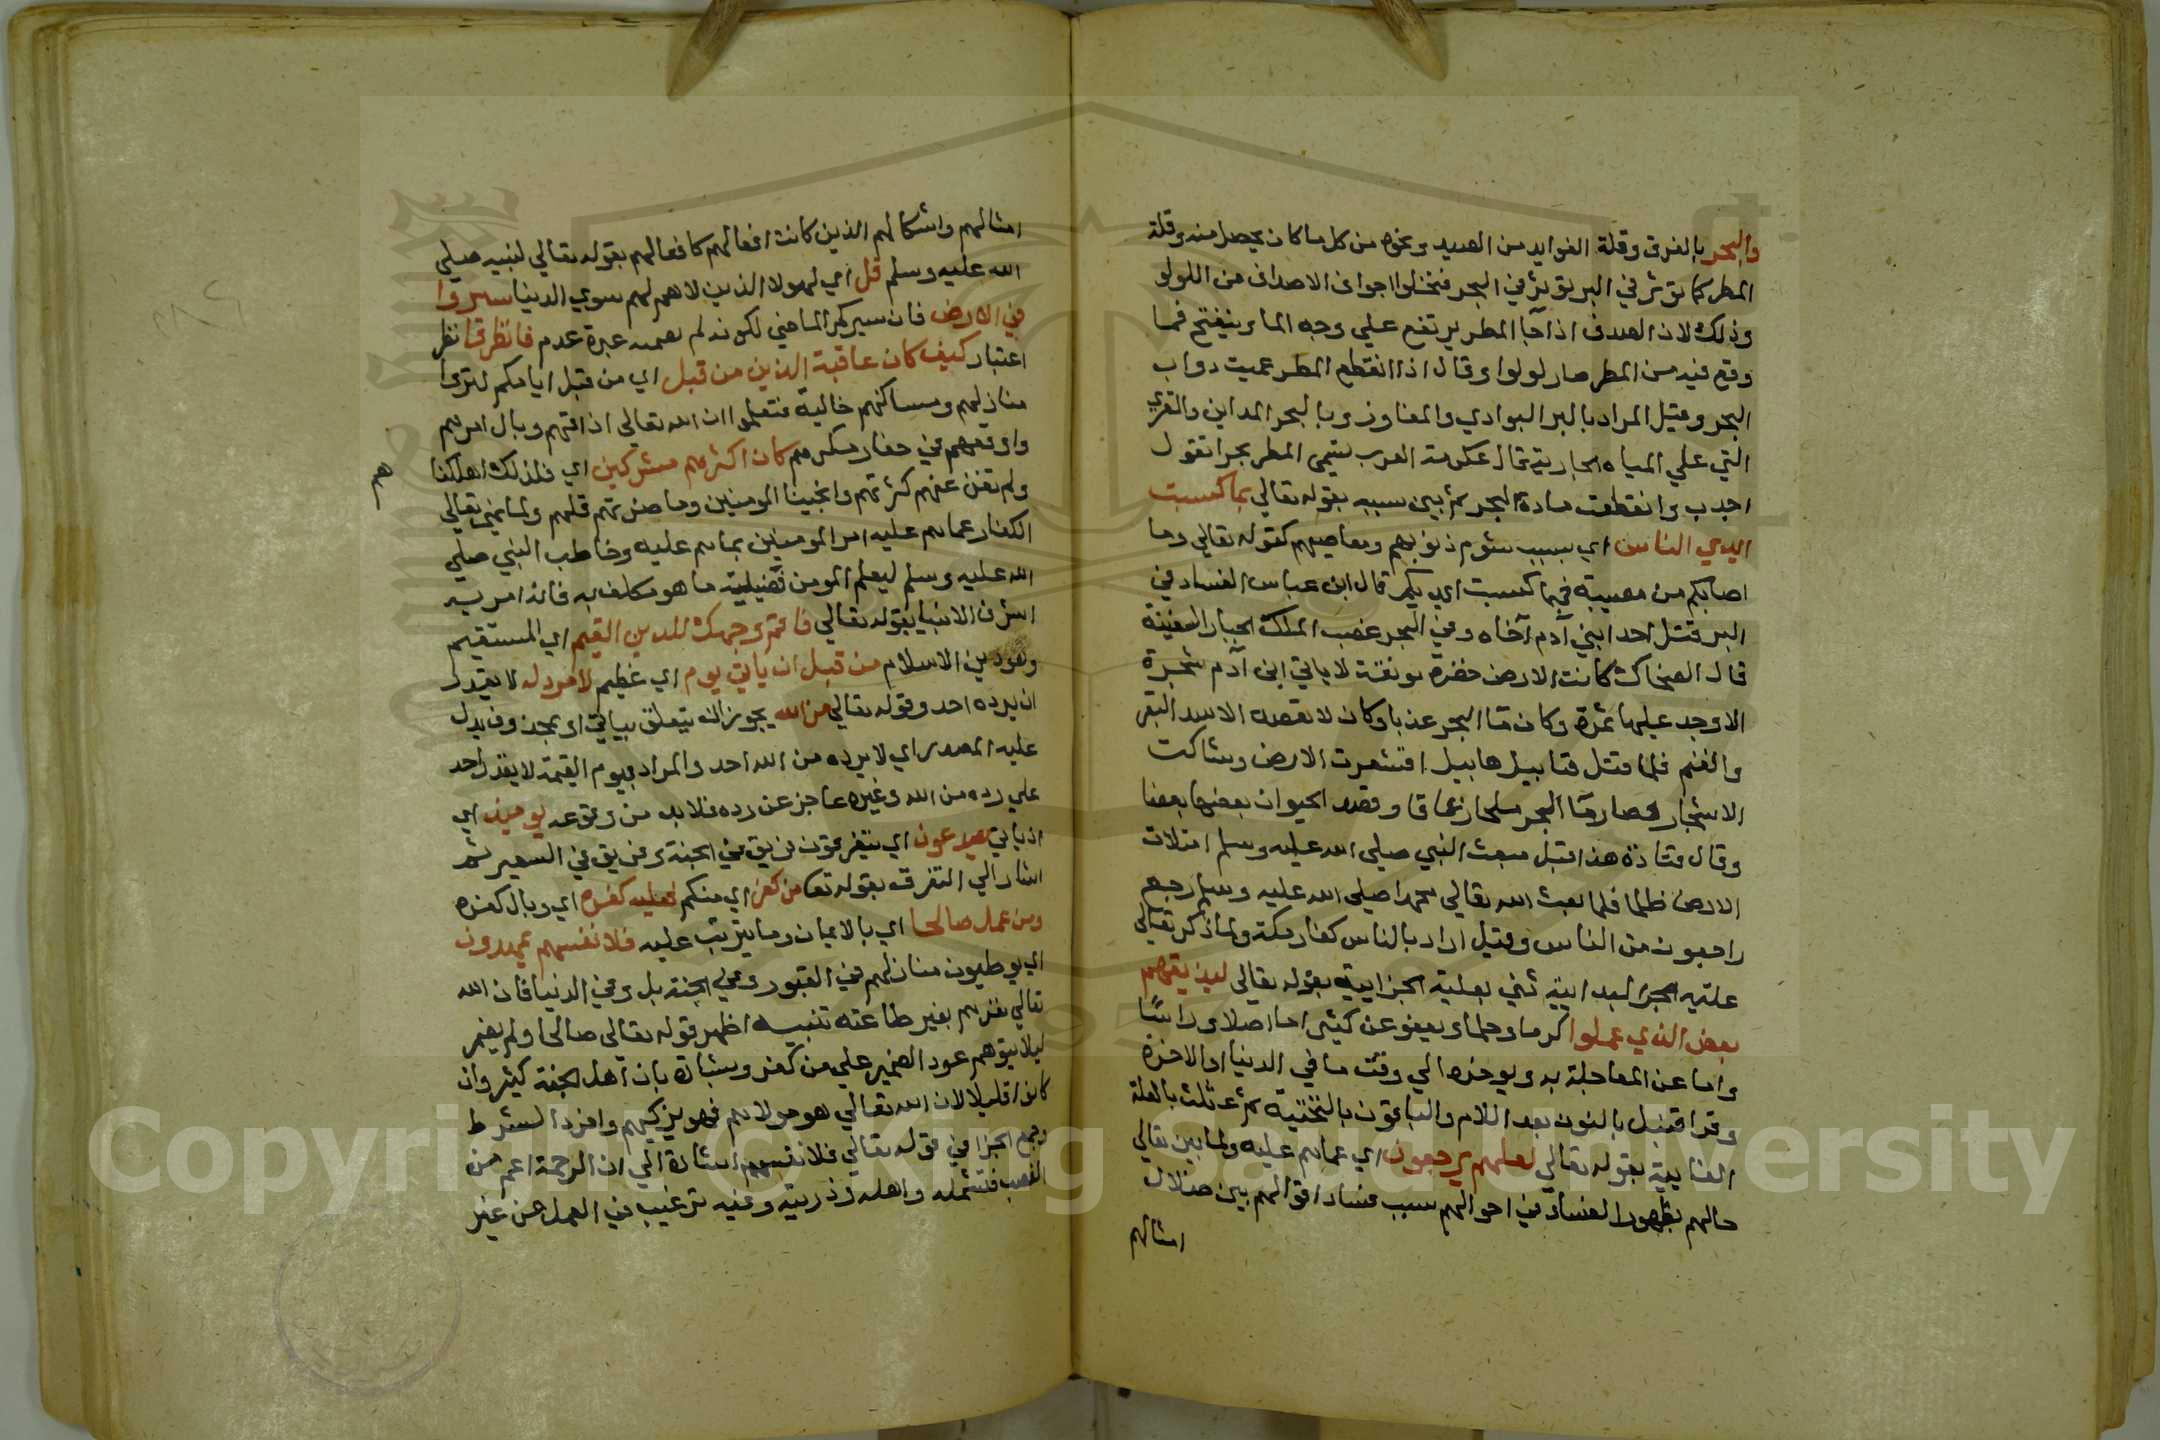 والبحر بالغرق وقلة الفوايد من الصيد ونحوه من كل ما كان يحصل منه وقلة
المطر كما توثر في البر توثر في البحر فتخلوا اجواف الاصداف من اللولو
وذلك لان الصدف اذا جا المطر يرتفع علي وجه الما وينفتح فما
وقع فيه من المطر صار لولوا وقال اذا انقطع المطر عميت دواب
البحر وقيل المراد بالبر البوادي والمفاوز وبالبحر المداين والقري
التي علي المياه الجارية قال عكرمة العرب تسمي المصر بحرا تقول
اجدب وانقطعت مادة البحر ثم بين سببه بقوله تعالي بما كسبت
ايدي الناس اي بسبب شوم ذنوبهم ومعاصيهم كقوله تعالي وما
اصابكم من مصيبة فبما كسبت ايديكم قال ابن عباس الفساد في
البر قتل احد ابني آدم آخاه وفي البحر غصب الملك الجبار السفينة
قال الضحاك كانت الارض خضرة مونقة لا ياتي ابن آدم شجرة
الا وجد عليها ثمرة وكان ما البحر عذبا وكان لا يقصد الاسد البقر
والغنم فلما قتل قابيل هابيل اقشعرت الارض وشاكت
الاشجار وصار ما البحر ملحا زعاقا وقصد الحيوان بعضها بعضا
وقال قتادة هذا قبل مبعث النبي صلي الله عليه وسلم امتلات
الارض ظلما فلما بعث الله تعالي محمدا صلي الله عليه وسلم رجع
راجعون من الناس وقيل اراد بالناس كفار مكة ولما ذكر تعالي
علته البدايية ثني بعلته الجزايية بقوله تعالي ليذيقهم
بعض الذي عملوا كرما وحلما ويعفو عن كثير اما اصلا وراسا
واما عن المعاجلة به ويوخره الي وقت ما في الدنيا او الاخرة
وقرا قنبل بالنون بعد اللام والباقون بالتحتية ثم ثلث بالعلة
الغايية بقوله تعالي لعلهم يرجعون اي عما هم عليه ولما بين تعالي
حالهم بظهور الفساد في احوالهم بسبب فساد اقوالهم بين ضلال
امثالهم
امثالهم واشكالهم الذين كانت افعالهم كافعالهم بقوله تعالي لنبيه صلي
الله عليه وسلم قل اي لهولا الذين لا هم لهم سوي الدنيا سيروا
في الارض فان سيركم الماضي لكونه لم يصحبه عبرة عدم فانظروا نظر
اعتبار كيف كان عاقبة الذين من قبل اي من قبل ايامكم لتروا
منازلهم ومساكنهم خالية فتعلموا ان الله تعالي اذاقهم وبال امرهم
واوقعهم في حفار مكرهم كان اكثرهم مشركين اي فلذلك اهلكنا
هم
ولم تغن عنهم كثرتهم وانجينا المومنين وما ضرتهم قلتهم ولما نهي تعالي
الكفار عما هم عليه امر المومنين بما هم عليه وخاطب النبي صلي
الله عليه وسلم ليعلم المومن فضيلة ما هو مكلف به فانه امر به
اشرف الانبيا بقوله تعالي فاقم وجهك للدين القيم اي المستقيم
وهو دين الاسلام من قبل ان ياتي يوم اي عظيم لا مرد له لا يقدر
ان يرده احد وقوله تعالي من الله يجوز ان يتعلق بياتي او بمحذوف يدل
عليه المصدر اي لا يرده من الله احد والمراد بيوم القيمة لا يقدر احد
علي رده من الله وغيره عاجز عن رده فلا بد من وقوعه يوميذ اي
اذ ياتي يصدعون اي يتفرقون فريق في الجنة وفريق في السعير ثم
اشار الي التفرق بقوله تعا من كفر اي منكم فعليه كفره اي وبال كفره
ومن عمل صالحا اي بالايمان وما يترتب عليه فلانفسهم يمهدون
اي يوطيون منازلهم في القبور وفي الجنة بل وفي الدنيا فان الله
تعالي يعزهم بعز طاعته تنبيه اظهر قوله تعالي صالحا ولم يضمر
ليلا يتوهم عود الضمير علي من كفر وبشارة بان اهل الجنة كثير وان
كانوا قليلا لان الله تعالي هو مولاهم فهو يزكيهم وافرد الشرط
وجمع الجزا في قوله تعالي فلانفسهم اشارة الي ان الرحمة اعم من
الغضب فتشمله واهله وذريته وفيه ترغيب في العمل من غير